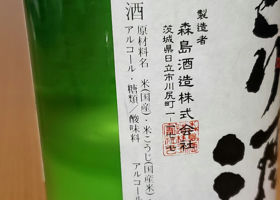 製造者
森島酒造株式会社
茨城県日立市川尻町一
酒
原材料名 米(国産)・米こうじ(国産米)・
アルコール・糖類/酸味料
アルコール